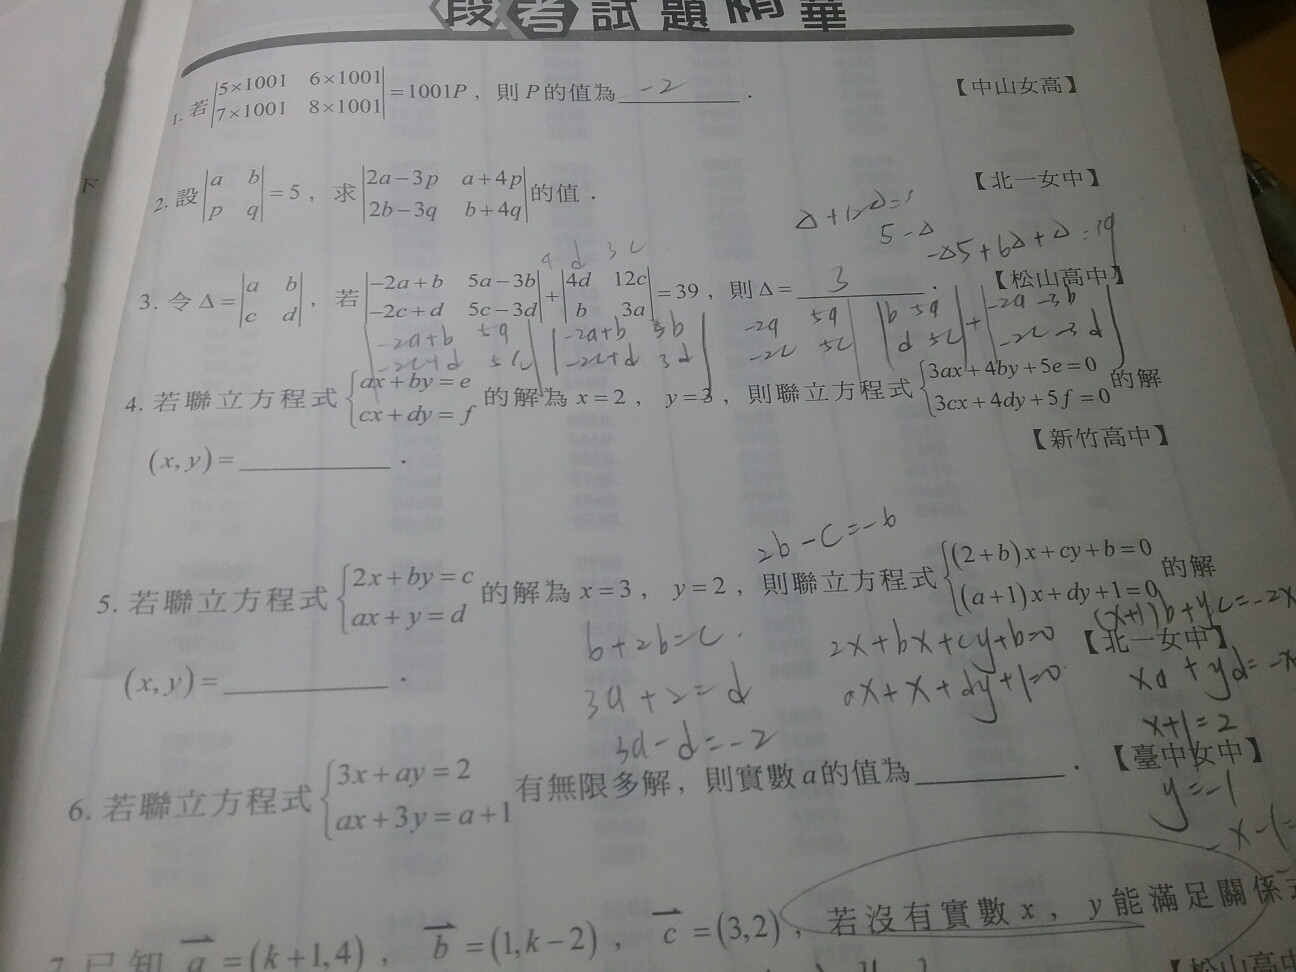 段考試題精華
1. 若 |5×1001 6×1001|
|7×1001 8×1001| =1001P，則P的值為 -2 ．【中山女高】
2. 設 |a b|
|p q| =5，求 |2a-3p a+4p|
|2b-3q b+4q| 的值．【北一女中】
5-Δ
4d 3c
3. 令Δ= |a b|
|c d| ，若 |-2a+b 5a-3b|
|-2c+d 5c-3d| + |4d 12c|
|b 3a| =39，則Δ= 3 ．【松山高中】
-2a+b 5a | -2a+b 3b | -2a 5a | b 5a | + | -2a -3b
-2c+d 5c | -2c+d 3d | -2c 5c | d 5c | -2c -3d
4. 若聯立方程式 {ax+by=e
cx+dy=f 的解為x=2，y=3，則聯立方程式 {3ax+4by+5e=0
3cx+4dy+5f=0 的解
(x,y)= ．【新竹高中】
2b-c=-b
5. 若聯立方程式 {2x+by=c
ax+y=d 的解為x=3，y=2，則聯立方程式 {(2+b)x+cy+b=0
(a+1)x+dy+1=0 的解
(x+1)b+yc=-2x
(x,y)= ．【北一女中】
b+2b=c
2x+bx+cy+b=0
3a+2=d
ax+x+dy+1=0
xa+yd=-x
3a-d=-2
x+1=2
6. 若聯立方程式 {3x+ay=2
ax+3y=a+1 有無限多解，則實數a的值為 ．【臺中女中】
y=-1
-x-1=
7. 已知 a=(k+1,4)，b=(1,k-2)，c=(3,2)，若沒有實數x，y能滿足關係
【松山高中